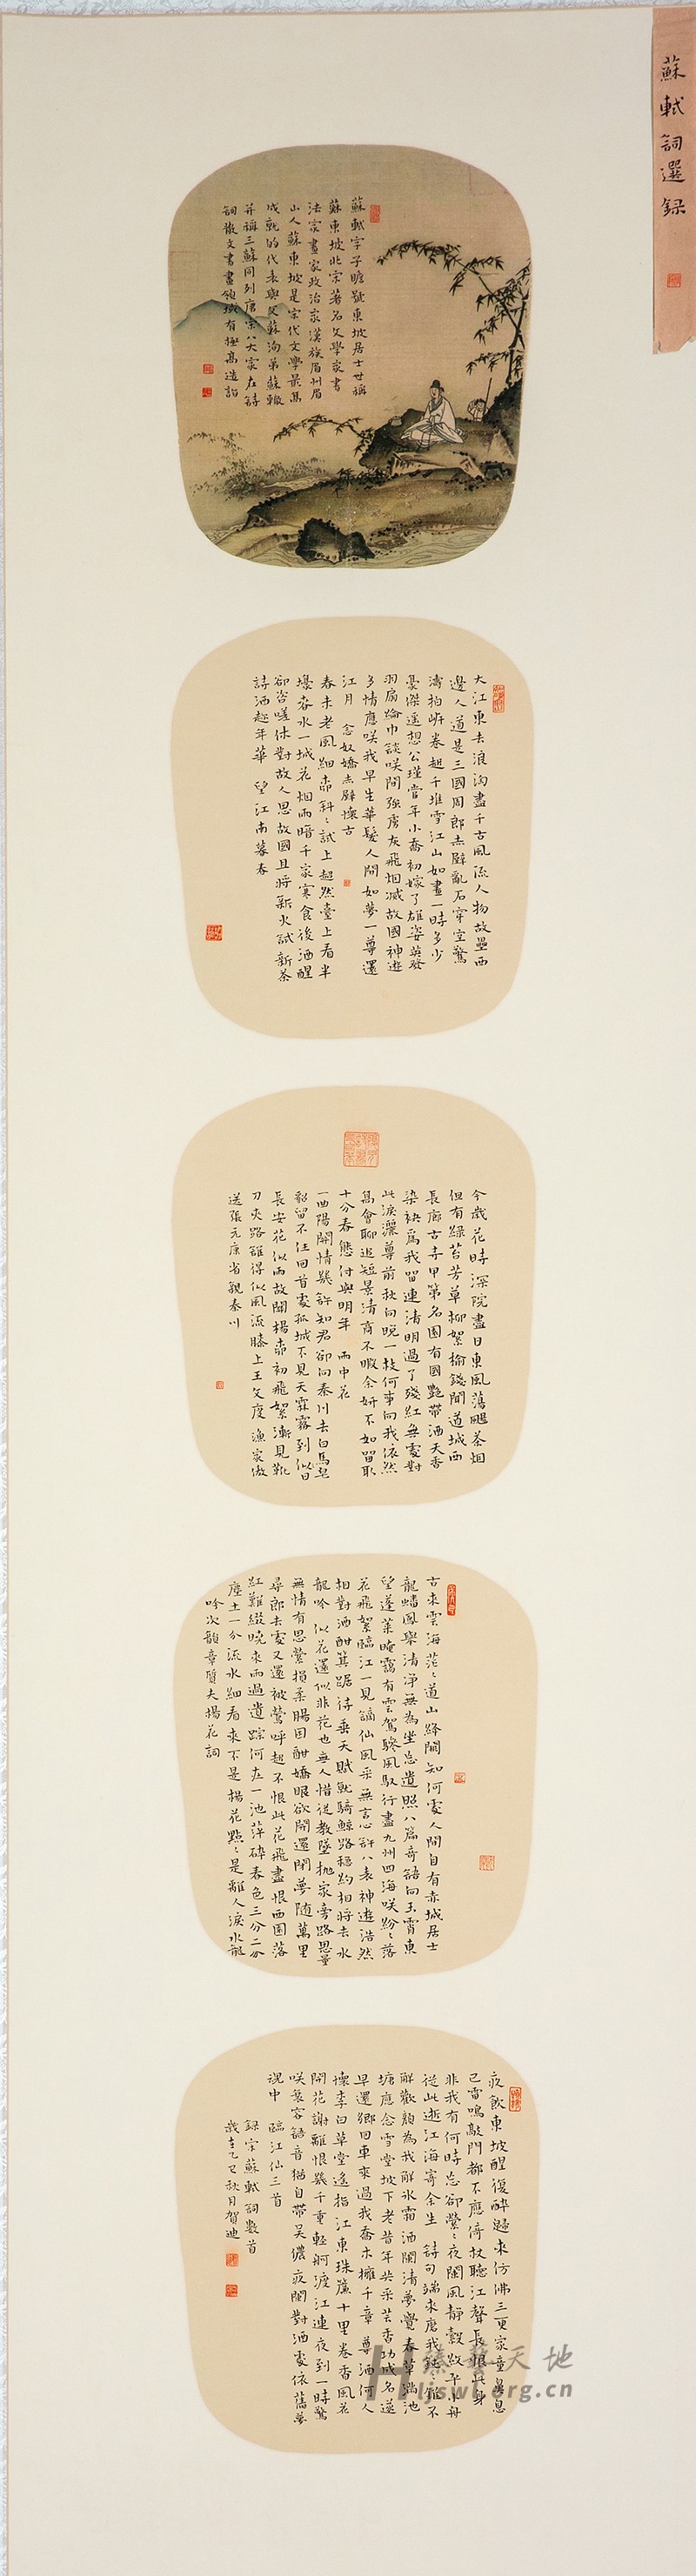 蘇軾詞選録
蘇軾字子瞻號東坡居士世稱
蘇東坡北宗著名文學家書
法家畫家政治家漢族眉州眉
山人蘇東坡是宋代文學最髙
成就的代表與父蘇洵弟蘇轍
并稱三蘇同列唐宋八大家在詩
詞散文書畫領域有極髙造詣
大江東去浪淘盡千古風流人物故壘西
邊人道是三國周郎赤壁亂石穿空驚
濤拍岸卷起千堆雪江山如畫一時多少
豪傑遥想公瑾當年小喬初嫁了雄姿英發
羽扇綸巾談笑間强虜灰飛烟滅故國神遊
多情應咲我早生華髮人間如夢一尊還
江月 念奴嬌赤壁懷古
春未老風細柳斜斜試上超然臺上看半
壕春水一城花烟雨暗千家寒食後酒醒
卻咨嗟休對故人思故國且將新火試新茶
詩酒趁年華 望江南暮春
今歲花時深院盡日東風蕩颺茶烟
但有緑苔芳草柳絮榆錢聞道城西
長廊古寺甲第名園有國艷帶酒天香
染袂爲我留連清明過了殘紅無處對
此淚灑尊前秋向晚一枝何事向我依然
髙會聊追短景清商不暇余妍不如留取
十分春態付與明年 雨中花
一曲陽關情幾許知君卻向秦川去白馬皂
貂留不住回首處孤城不見天霖霧到似日
長安花似雨故關楊柳初飛絮漸見靴
刀夾路迎得似風流膝上王文度 漁家傲
送張元康省親秦川
古來雲海茫茫道山絳闕知何處人間自有赤城居士
龍蟠鳳舉清淨無為坐忘遺照八篇奇語向玉霄東
望蓬萊晻靄有雲駕驂風馭行盡九州四海咲紛紛落
花飛絮臨江一見謫仙風采無言心許八表神遊浩然
相對酒酣箕踞待垂天賦就騎鯨路穩約相將去水
龍吟 似花還似非花也無人惜從教墜抛家旁路思量
無情有思縈損柔腸困酣嬌眼欲開還閉夢随萬里
尋郎去處又還被鶯呼起不恨此花飛盡恨西園落
紅難綴曉來雨過遺踪何在一池萍碎春色三分二分
塵土一分流水細看來不是楊花點點是離人淚水龍
吟次韻章質夫楊花詞
夜飲東坡醒復醉歸來仿佛三更家童鼻息
已雷鳴敲門都不應倚杖聽江聲長恨此身
非我有何時忘卻營營夜闌風靜縠紋平小舟
從此逝江海寄余生 詩句端來磨我鈍鈍錐不
解歡顔為我解冰霜酒闌清夢覺春草滿池
塘應念雪堂坡下老昔年共采芸香功成名遂
早還鄉回車來過我喬木擁千章 尊酒何人
懷李白草堂遥指江東珠簾十里卷香風花
開花謝離恨幾千重輕舸渡江連夜到一時驚
咲衰容語音猶自帶吴儂夜闌對酒處依舊夢
魂中 臨江仙三首
録宋蘇軾詞數首
歲在乙丑秋月賀迪
臻藝天地
Hljswl.org.cn